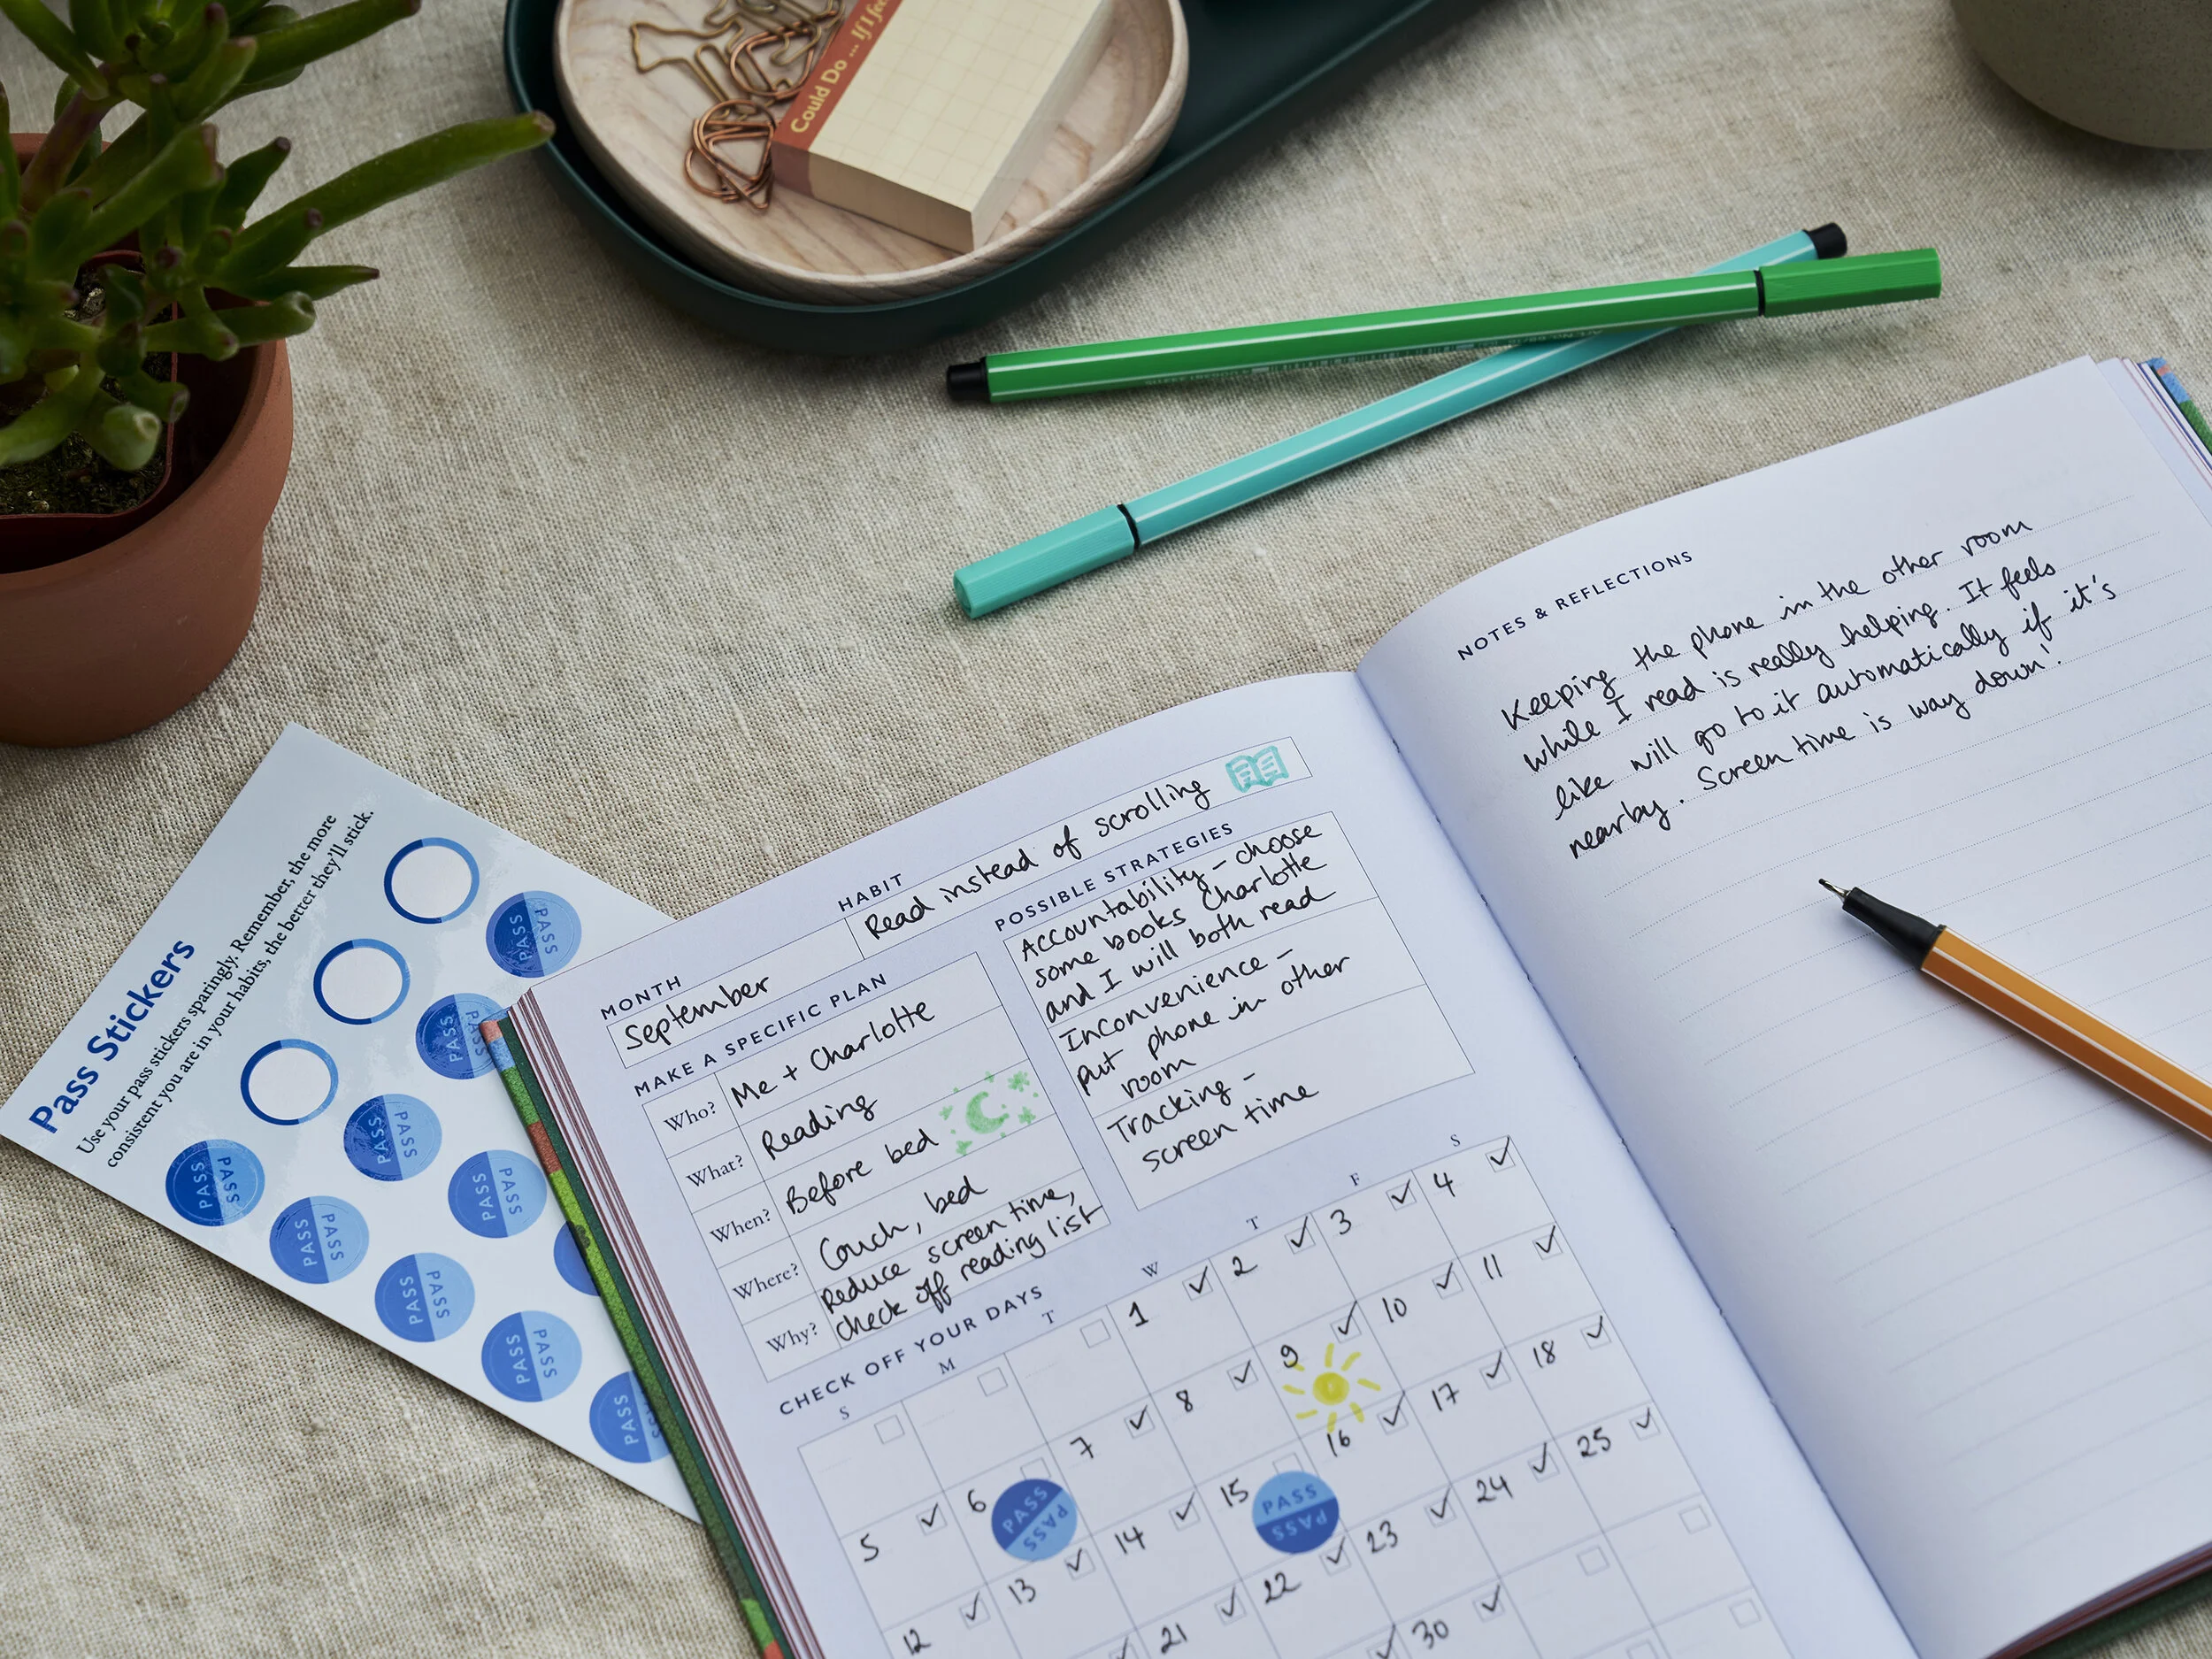 Could Do ... If I fee
Pass Stickers
Use your pass stickers sparingly. Remember, the more
consistent you are in your habits, the better they'll stick.
PASS PASS
PASS PAS
PASS PASS
PASS PASS
PASS PASS
PASS PASS
PASS PASS
PASS PASS
PASS PASS
MONTH
September
HABIT
Read instead of scrolling
MAKE A SPECIFIC PLAN
Who? Me + Charlotte
What? Reading
When? Before bed
Where? Couch, bed
Why? Reduce screen time,
check off reading list
POSSIBLE STRATEGIES
Accountability - choose
some books Charlotte
and I will both read
Inconvenience -
put phone in other
room
Tracking -
screen time
CHECK OFF YOUR DAYS
S M T W T F S
1 ✓ 2 ✓ 3 ✓ 4 ✓
5 ✓ 6 PASS PASS 7 ✓ 8 ✓ 9 ✓ 10 ✓ 11 ✓
12 ✓ 13 ✓ 14 ✓ 15 PASS PASS 16 ✓ 17 ✓ 18 ✓
21 ✓ 22 ✓ 23 ✓ 24 ✓ 25 ✓
30 ✓
NOTES & REFLECTIONS
Keeping the phone in the other room
while I read is really helping. It feels
like will go to it automatically if it's
nearby. Screen time is way down!